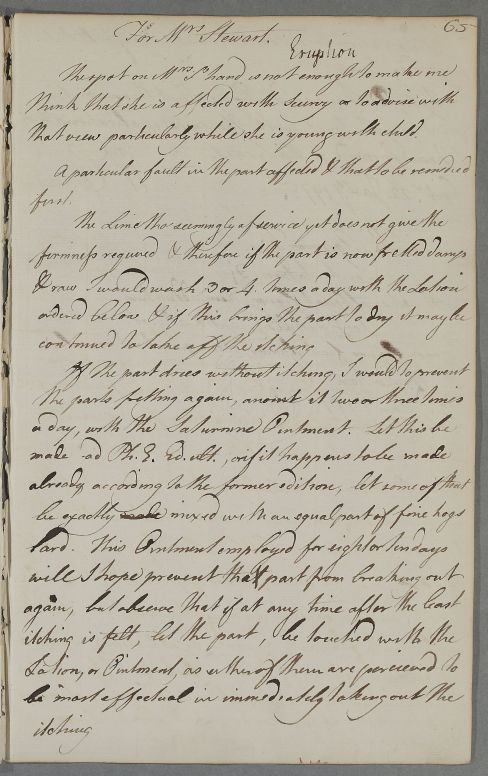 65
For Mrs Stewart.
Eruption
The spot on Mrs S's hand is not enough to make me
think that she is affected with Scurvy or to advise with
that view particularly while she is young with child.
A particular fault in the part affected & that to be remedied
first.
The Lime tho seemingly of service yet does not give the
firmness required & therefore if the part is now fretted damp
& raw I would wash 3 or 4 times a day with the Lotion
ordered below & if this brings the part to dry it may be
continued to take off the itching
If the part dries without itching, I would to prevent
the parts fretting again, anoint it two or three times
a day, with the Saturnine Ointment. Let this be
made ad Ph. E. Ed. ult., or if it happens to be made
already according to the former edition, let some of that
be exactly made mixed with an equal part of fine hogs
lard. This Ointment employed for eight or ten days
will I hope prevent that part from breaking out
again, but observe that if at any time after the least
itching is felt, let the part, be touched with the
Lotion, or Ointment, as either of them are percieved to
be most effectual in immediately taking out the
itching